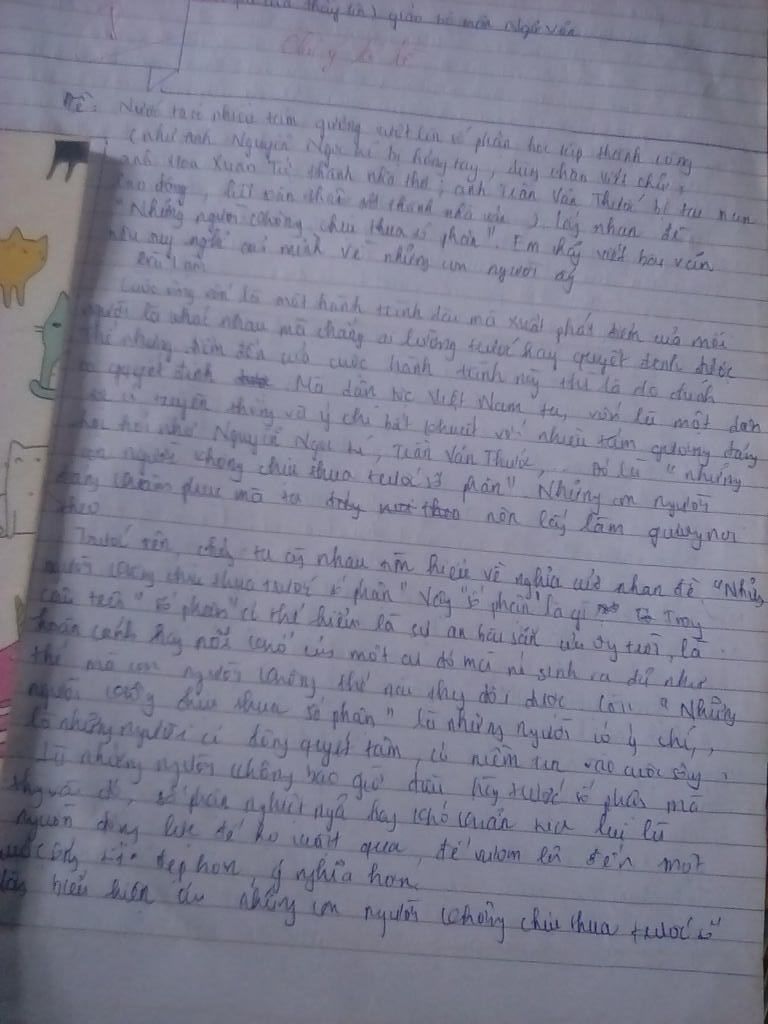 giáo bộ môn Ngữ văn
Chú ý
Đề: Nước ta có nhiều tấm gương vượt lên số phận học tập thành công
(như anh Nguyễn Ngọc kí bị hỏng tay, dùng chân viết chữ;
anh Hoa Xuân Tử thành nhà thơ; anh Trần Văn Thước bị tai nạn
lao động, liệt toàn thân thành nhà văn) lấy nhan đề
"Những người không chịu thua số phận". Em hãy viết bài văn
nêu suy nghĩ của mình về những con người ấy
Bài làm
Cuộc sống vốn là một hành trình dài mà xuất phát điểm của mỗi
người là khác nhau mà chẳng ai lường trước hay quyết định được
thế nhưng điểm đến của cuộc hành trình này thì là do chính
ta quyết định Mà dân tộc Việt Nam ta, vốn là một dân
tộc có truyền thống về ý chí bất khuất với nhiều tấm gương đáng
học hỏi như Nguyễn Ngọc kí, Trần Văn Thước,... Đó là "những
con người không chịu thua trước số phận". Những con người
đáng khâm phục mà ta nên lấy làm gương noi
theo
Trước tiên, chúng ta cùng nhau tìm hiểu về nghĩa của nhan đề "Những
người không chịu thua trước số phận" Vậy "số phận" là gì Trong
câu trên "số phận" có thể hiểu là sự an bài sẵn của ông trời, là
hoàn cảnh hay nỗi khổ của một ai đó mà khi sinh ra đã như
thế mà con người không thể nào thay đổi được Còn "Những
người không chịu thua số phận" là những người có ý chí,
là những người có lòng quyết tâm, có niềm tin vào cuộc sống,
Là những người không bao giờ đầu hàng trước số phận mà
thay vào đó, số phận nghiệt ngã hay khó khăn kia lại là
nguồn động lực để họ vượt qua, để vươn lên đến một
cuộc sống tốt đẹp hơn, ý nghĩa hơn.
biểu hiện của những con người không chịu thua trước số